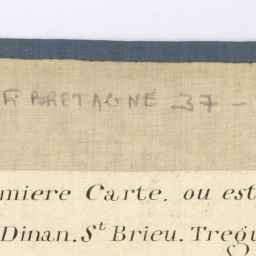 BRETAGNE 37 -
miere Carte, ou est
Dinan. St Brieu. Tregu